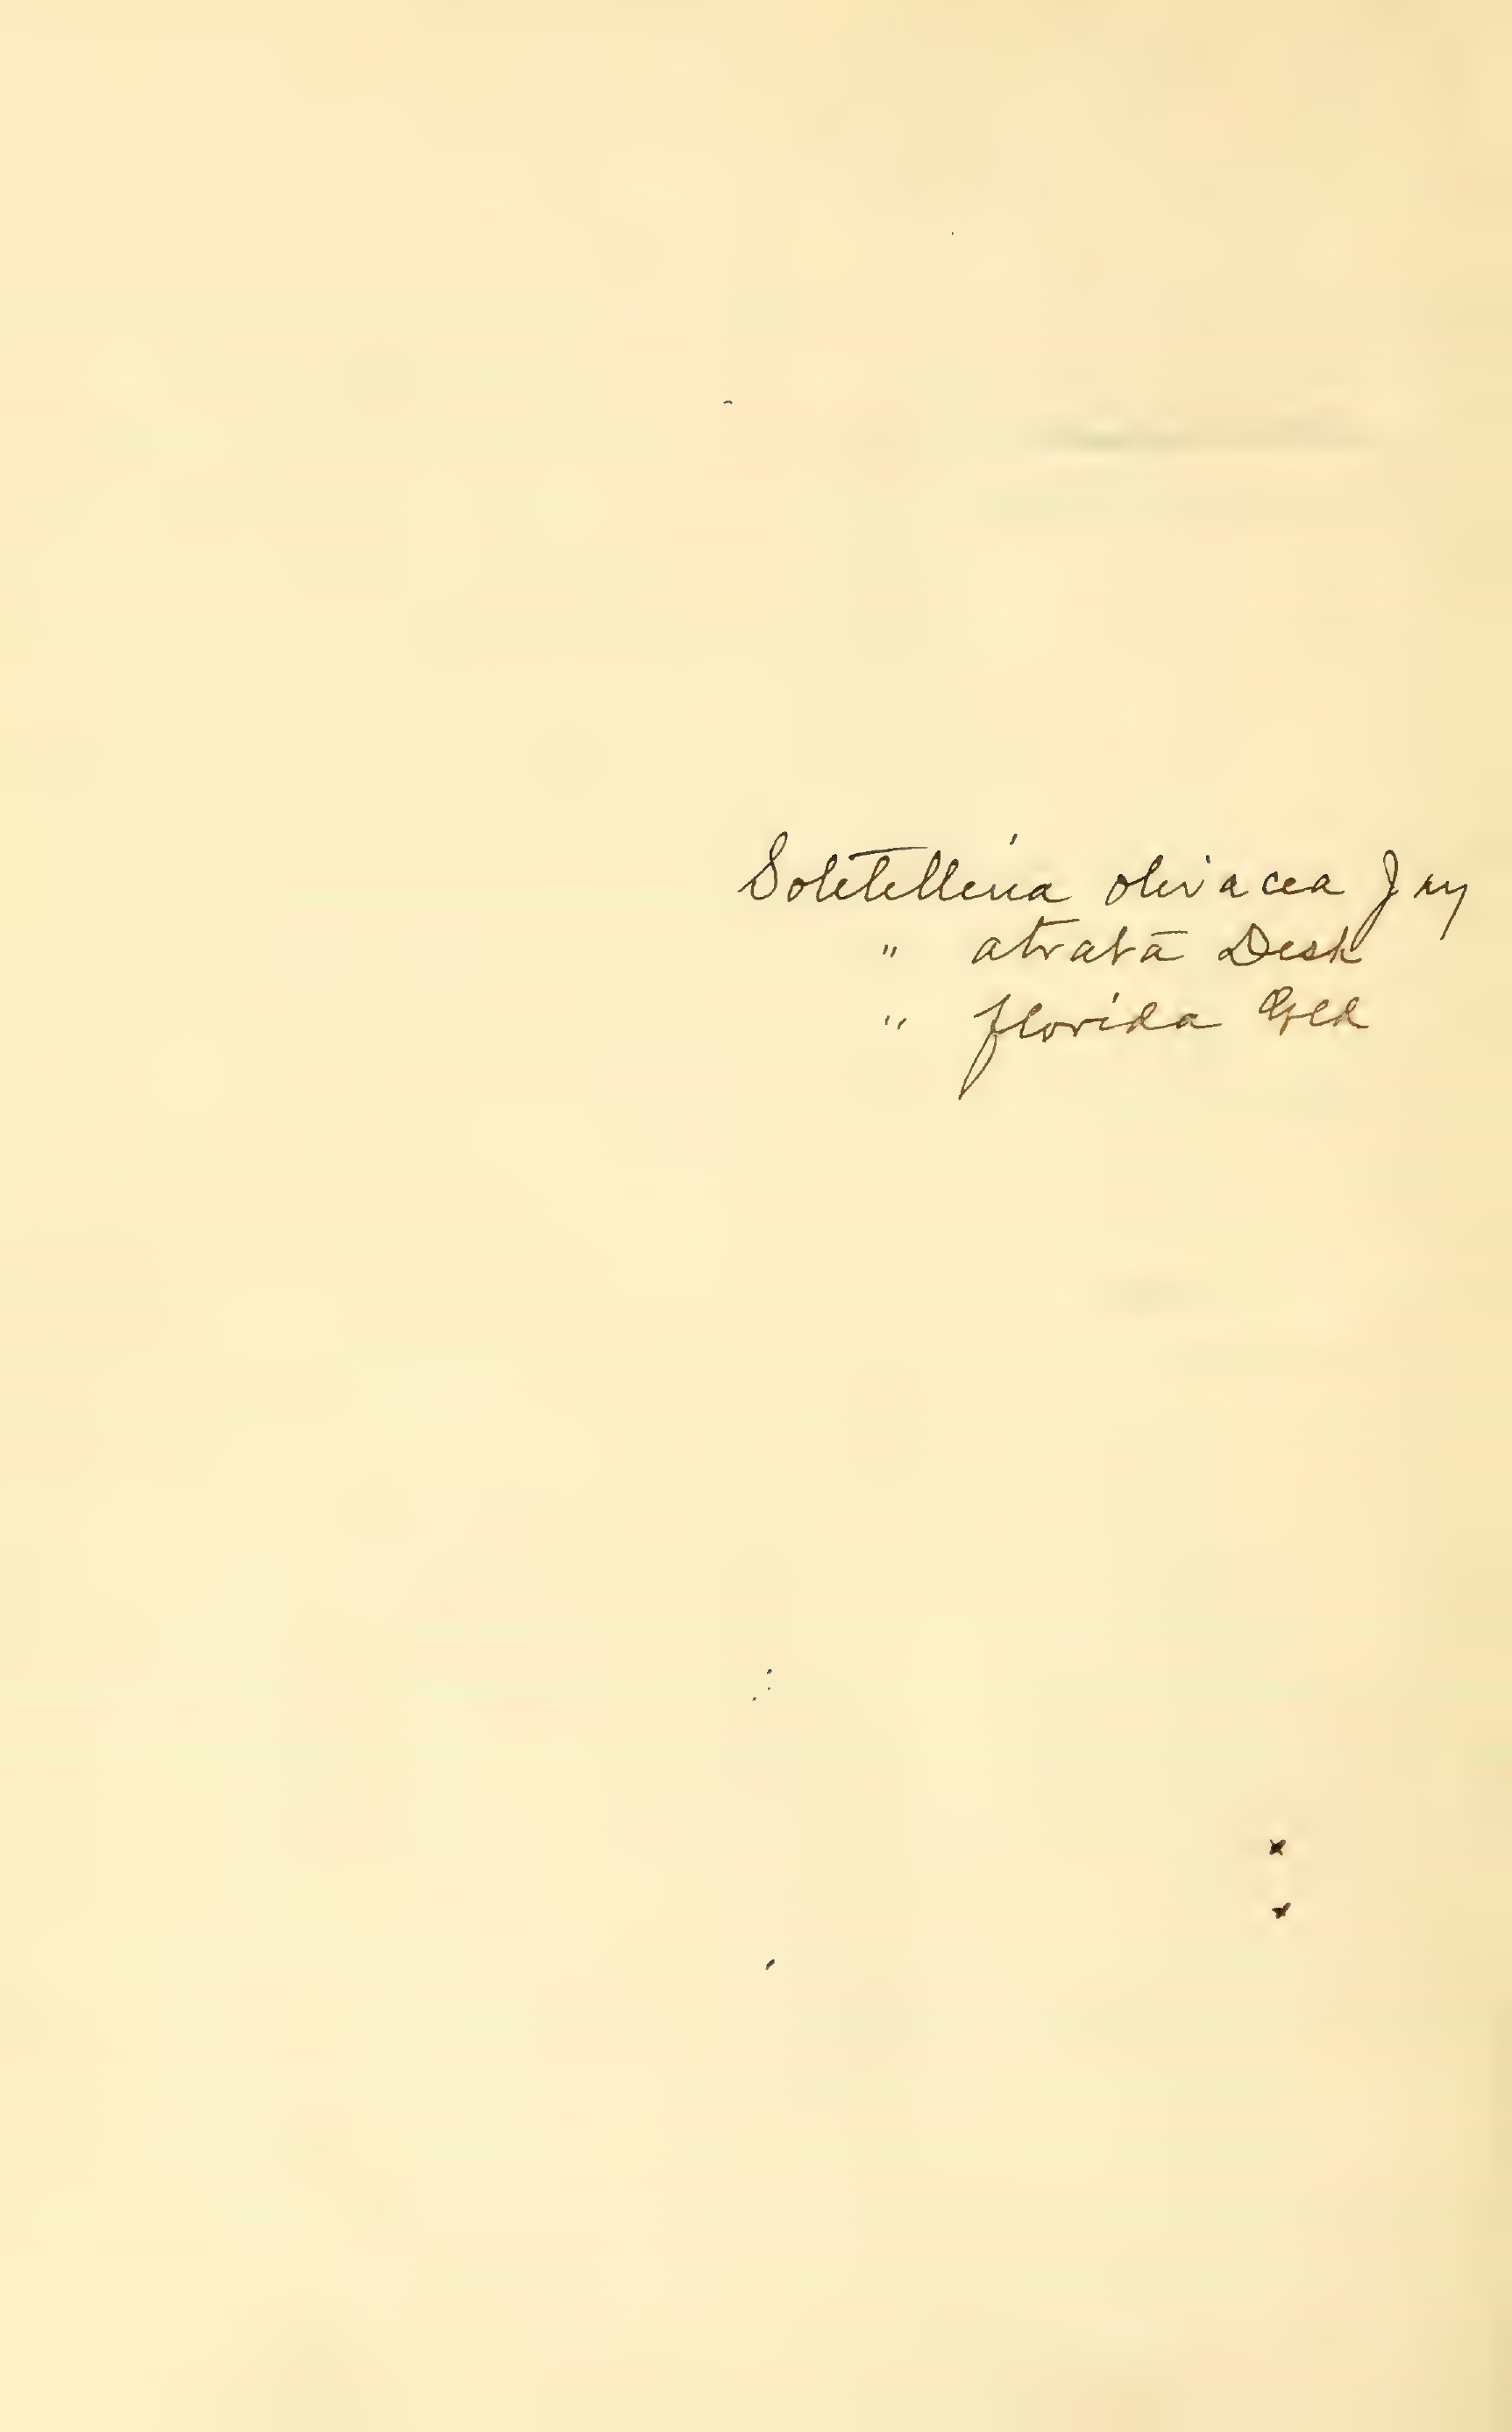 Soletellina olivacea Jay
" atrata Desh
" florida Gld